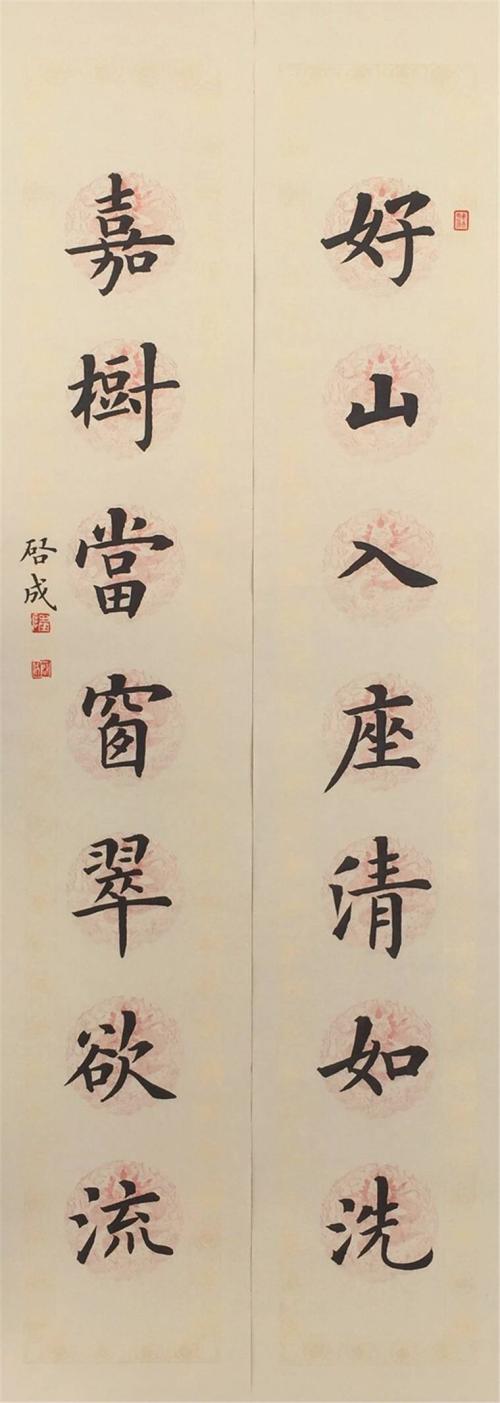 好山入座清如洗
嘉樹當窗翠欲流
啓成